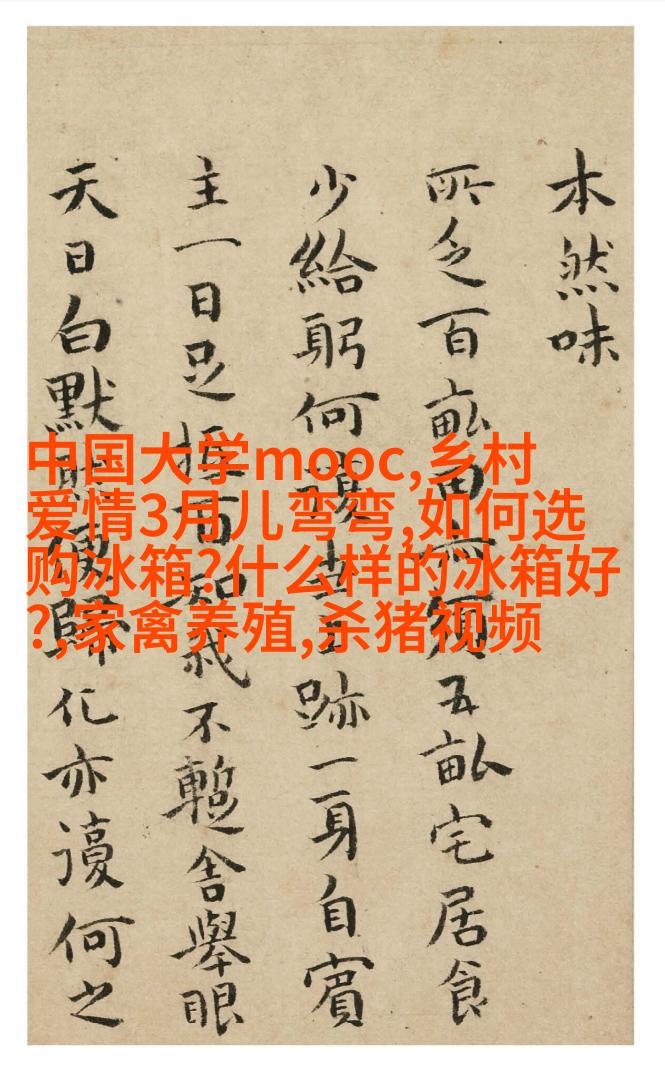 本然味
所乏百畝田須五畝宅居食
少給躬何跡一身自賓
主一日足我不暫舍舉眼
天日白默歸化亦謾何之
中国大学mooc,乡村
爱情3月儿弯弯,如何选
购冰箱?什么样的冰箱好
?,家禽养殖,杀猪视频